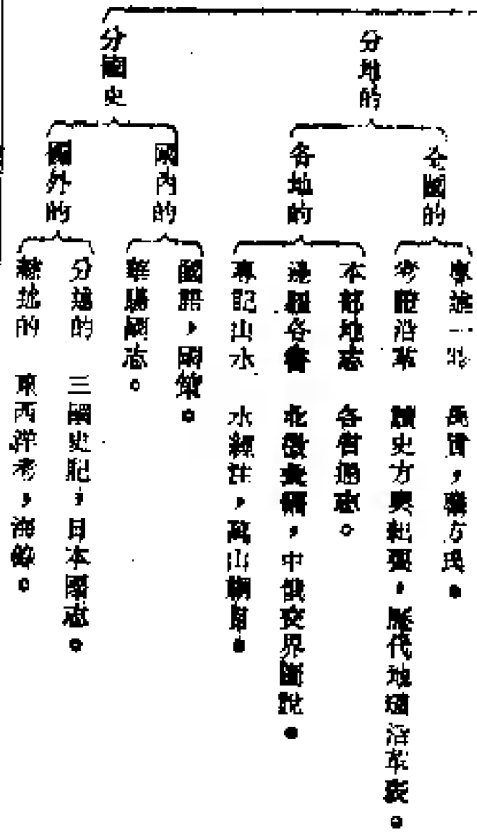 分地的
全國的
專述一時 禹貢，職方氏。
考證沿革 讀史方輿紀要，歷代地理沿革表。
各地的
本部地志 各省通志。
邊疆各書 北徼彙編，中俄交界圖說。
專記山水 水經注，萬山綱目。
分國史
國內的
國語，國策。
華陽國志。
國外的
分述的 三國史記，日本國志。
總地的 東西洋考，海錄。